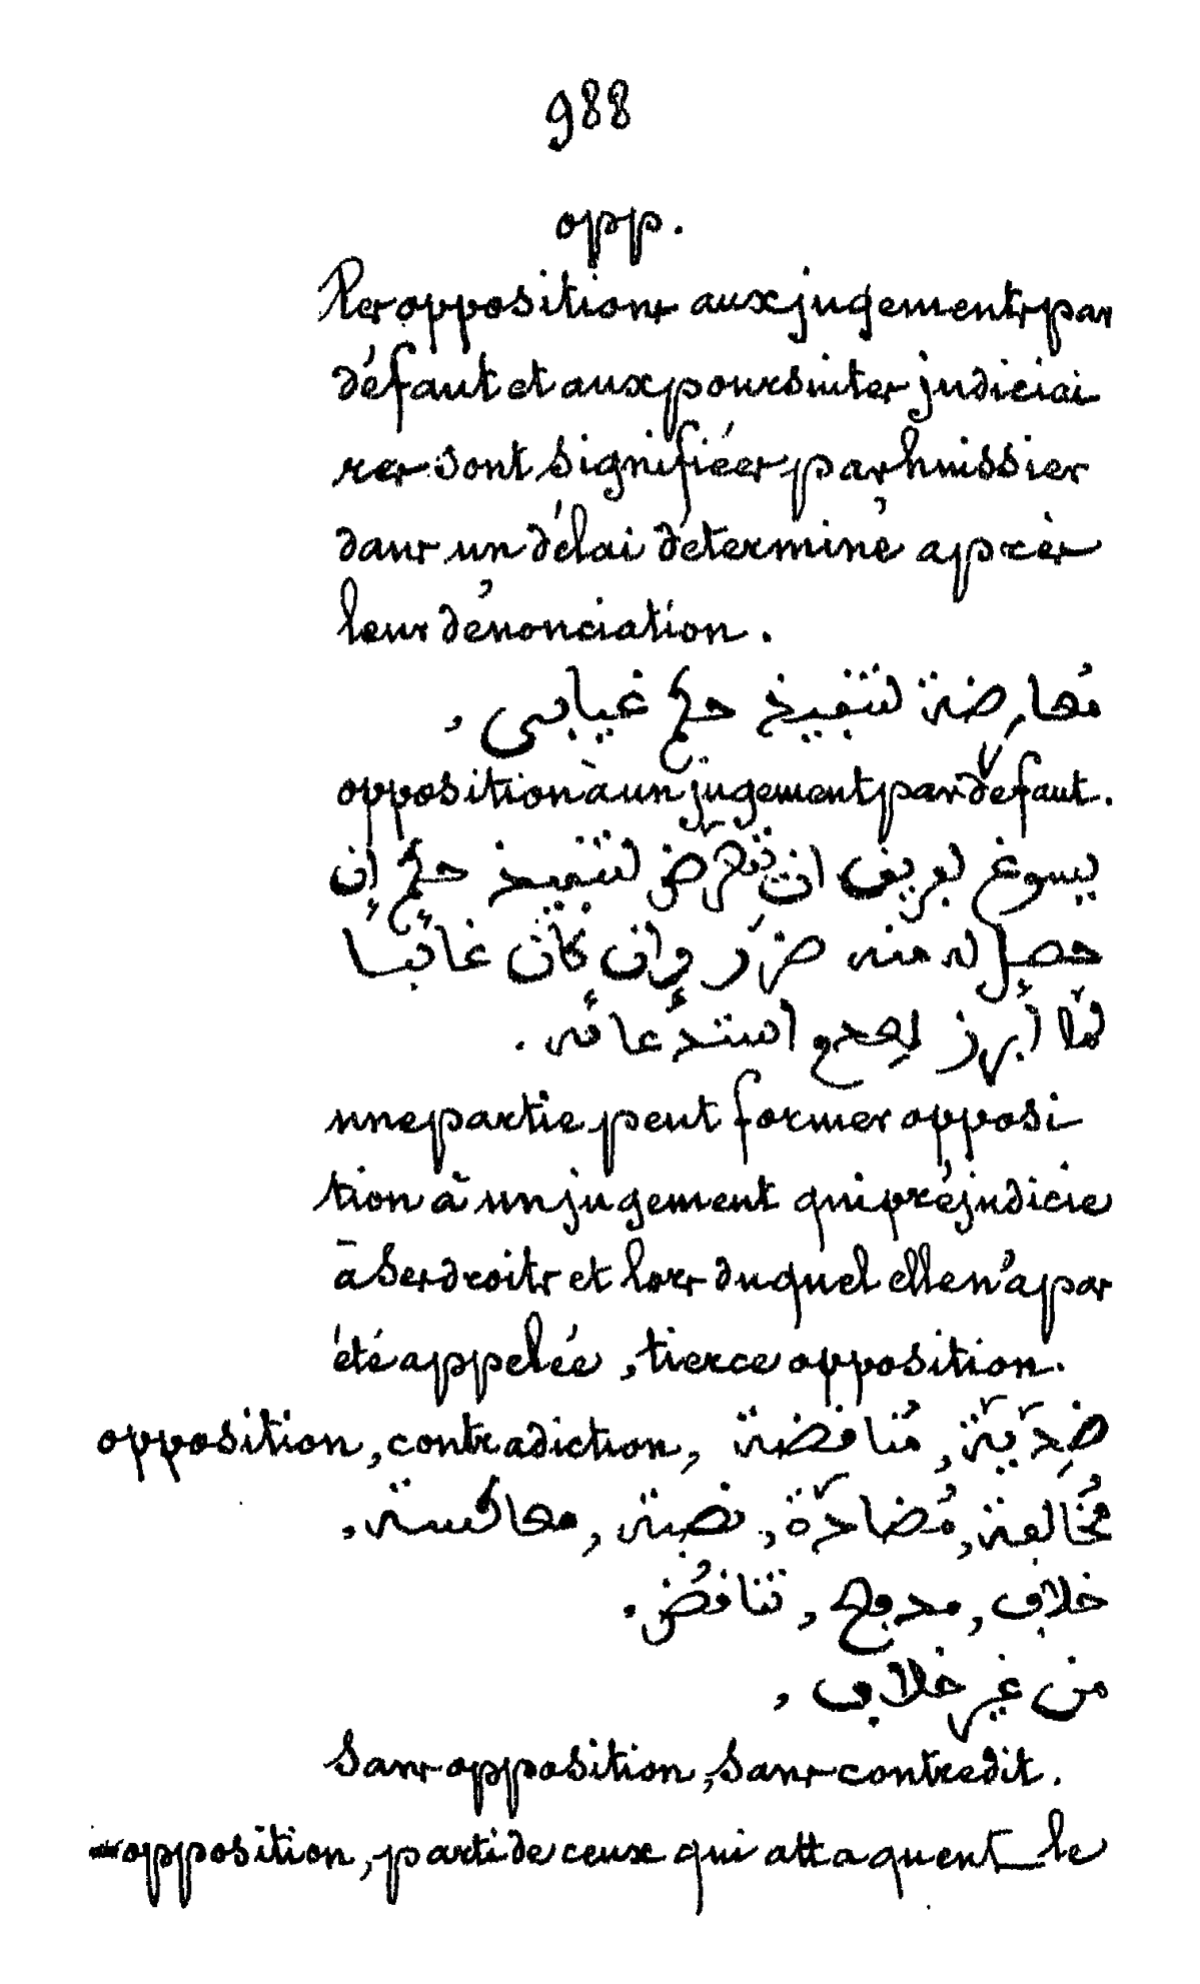 988
opp.
Les oppositions aux jugements par
défaut et aux poursuites judiciai
res sont signifiées par huissier
dans un délai déterminé après
leur dénonciation.
مُعارضة لتنفيذ حكم غيابي ,
opposition à un jugement par défaut.
يسوغ لفريق ان تعرّض لتنفيذ حكم إن
حصل له منه ضرَر وإن كان غائبًا
لمّا أبرز الحكم استدعائه .
une partie peut former opposi
tion à un jugement qui préjudicie
à ses droits et lors duquel elle n'a pas
été appelée, tierce opposition.
opposition, contradiction, ضِدّيّة, مُناقضة
مُخَالفة, مُضادّة, نصبة, معاكسة,
خلاف, مدفع, تناقُض.
من غير خلاف ,
sans opposition, sans contredit.
— opposition, parti de ceux qui attaquent le